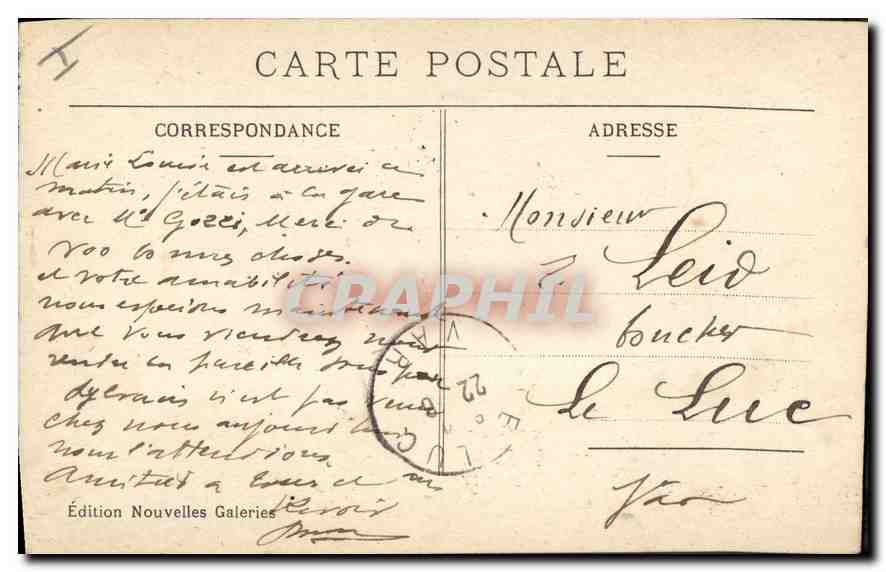 CARTE POSTALE
CORRESPONDANCE
Marie Louise est arrivée ce
matin, j'étais à la gare
avec Mr Gozzi, Merci de
vos bonnes choses.
et votre amabilité
nous espérons maintenant
que vous viendrez nous
rendre la pareille
n'est pas venu
chez nous aujourd'hui
nous l'attendions.
Amitiés à tous et au
Revoir
Édition Nouvelles Galeries
ADRESSE
Monsieur
Leid
boucher
Le Luc
Var
CRAPHIL
LE LUC
VAR
22